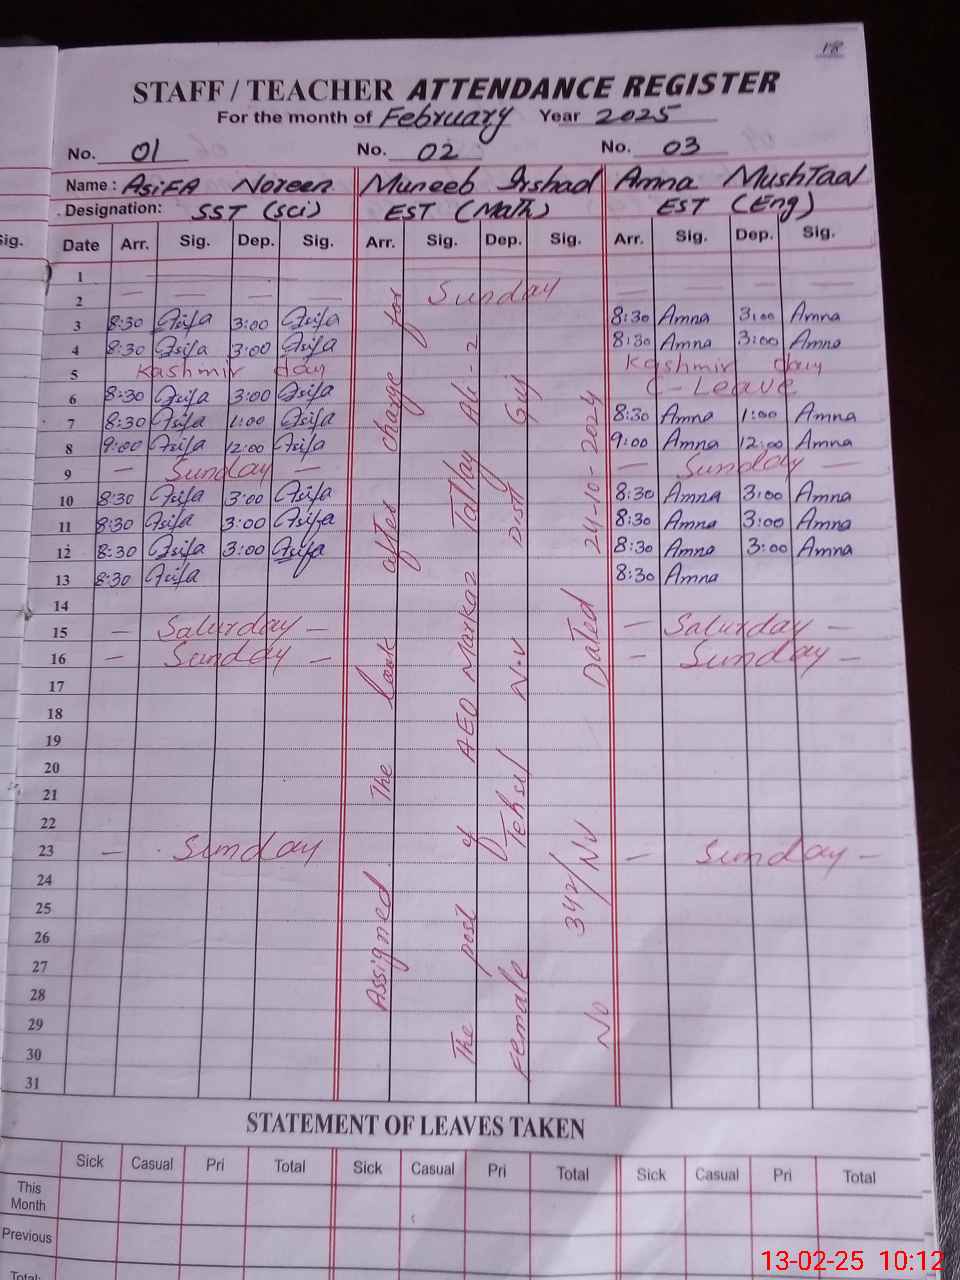 18
STAFF / TEACHER ATTENDANCE REGISTER
For the month of February Year 2025
No. 01 No. 02 No. 03
Name : Asifa Noreen Muneeb Irshad Amna Mushtaal
Designation: SST (Sci) EST (Math) EST (Eng)
Sig. Date Arr. Sig. Dep. Sig. Arr. Sig. Dep. Sig. Arr. Sig. Dep. Sig.
1
2 — — — — Sunday — — — —
3 8:30 Asifa 3:00 Asifa 8:30 Amna 3:00 Amna
4 8:30 Asifa 3:00 Asifa 8:30 Amna 3:00 Amna
5 Kashmir day Kashmir day
6 8:30 Asifa 3:00 Asifa C - Leave
7 8:30 Asifa 1:00 Asifa 8:30 Amna 1:00 Amna
8 9:00 Asifa 12:00 Asifa 9:00 Amna 12:00 Amna
9 — Sunday — — Sunday —
10 8:30 Asifa 3:00 Asifa 8:30 Amna 3:00 Amna
11 8:30 Asifa 3:00 Asifa 8:30 Amna 3:00 Amna
12 8:30 Asifa 3:00 Asifa 8:30 Amna 3:00 Amna
13 8:30 Asifa 8:30 Amna
14
15 — Saturday — — Saturday —
16 — Sunday — — Sunday —
17
18
19
20
21
22
23 — Sunday — Sunday —
24
25
26
27
28
29
30
31
Assigned The look after charge for
The post of AEO Markaz Tatlay Ali - 2
Female Tehsil N.V Distt Guj
No 342/NV Dated 24-10-2024
STATEMENT OF LEAVES TAKEN
Sick Casual Pri Total Sick Casual Pri Total Sick Casual Pri Total
This
Month
Previous
Total:
13-02-25 10:12